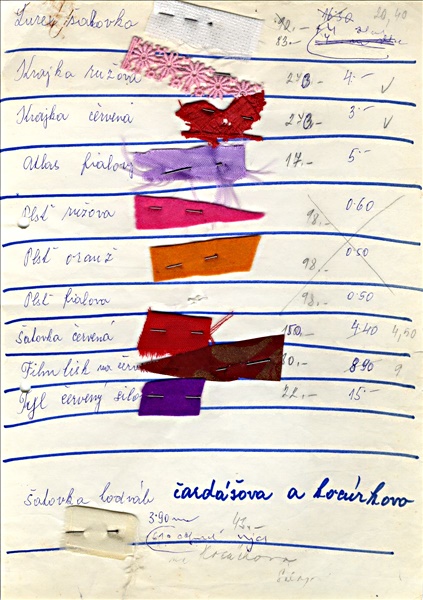 šatovka 82,- 16.50 20,40
83.-
Krajka ružová 273.- 4.- v
Krajka červená 273.- 3.- v
Atlas fialový 17.- 5.-
Plsť ružová 98,- 0.60
Plsť oranž 98,- 0.50
Plsť fialova 98,- 0.50
Šatovka červená 150.- 4.40 4,50
Film tisk na čer 80.- 8.90 9
Tyl červený silo 22,- 15.-
šatovka hodváb čardášova a kocúrkovo
3.90m 43,-